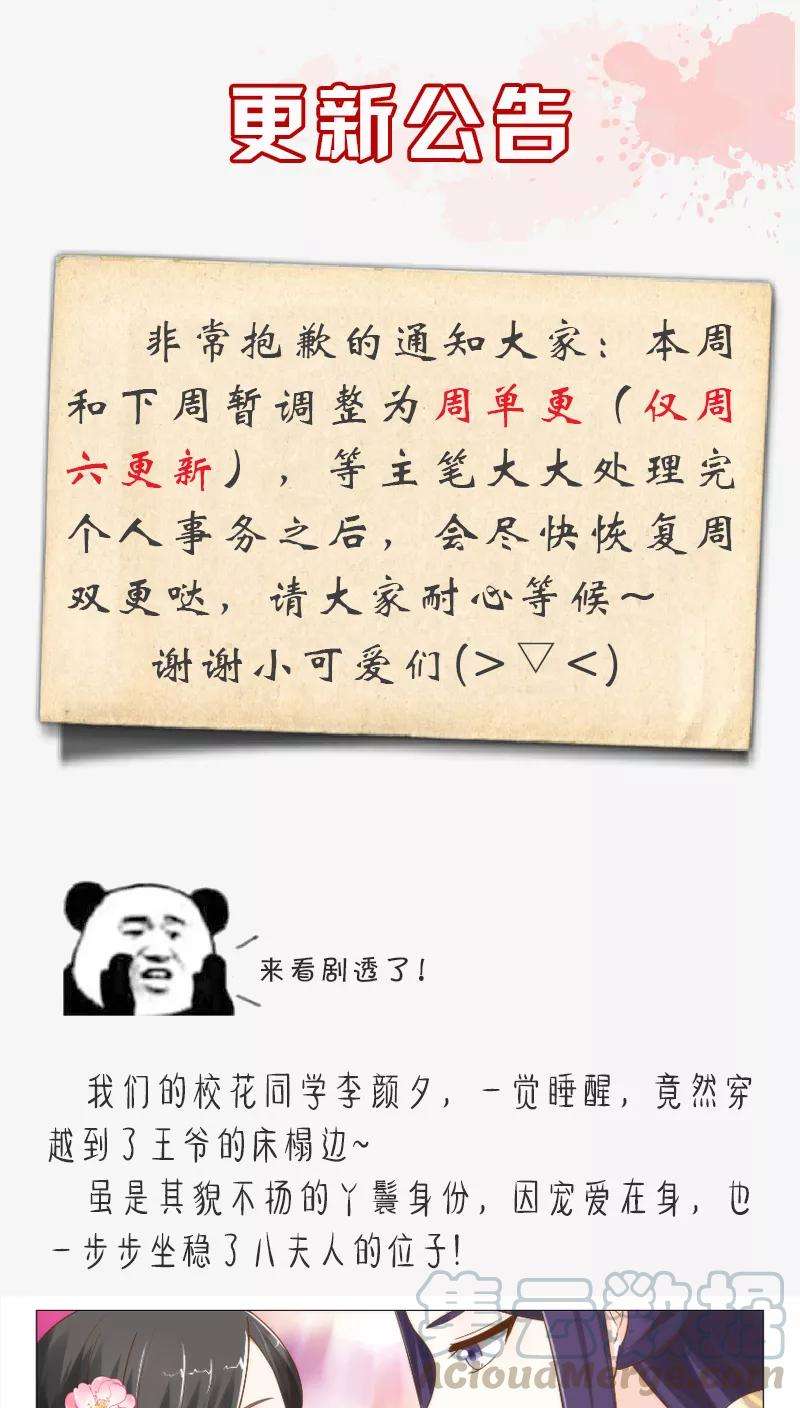 更新公告
非常抱歉的通知大家：本周
和下周暂调整为周单更（仅周
六更新），等主笔大大处理完
个人事务之后，会尽快恢复周
双更哒，请大家耐心等候～
谢谢小可爱们(>▽<)
来看剧透了！
我们的校花同学李颜夕，一觉睡醒，竟然穿
越到了王爷的床榻边~
虽是其貌不扬的丫鬟身份，因宠爱在身，也
一步步坐稳了八夫人的位子！
集云数据
ACloudMerge.com